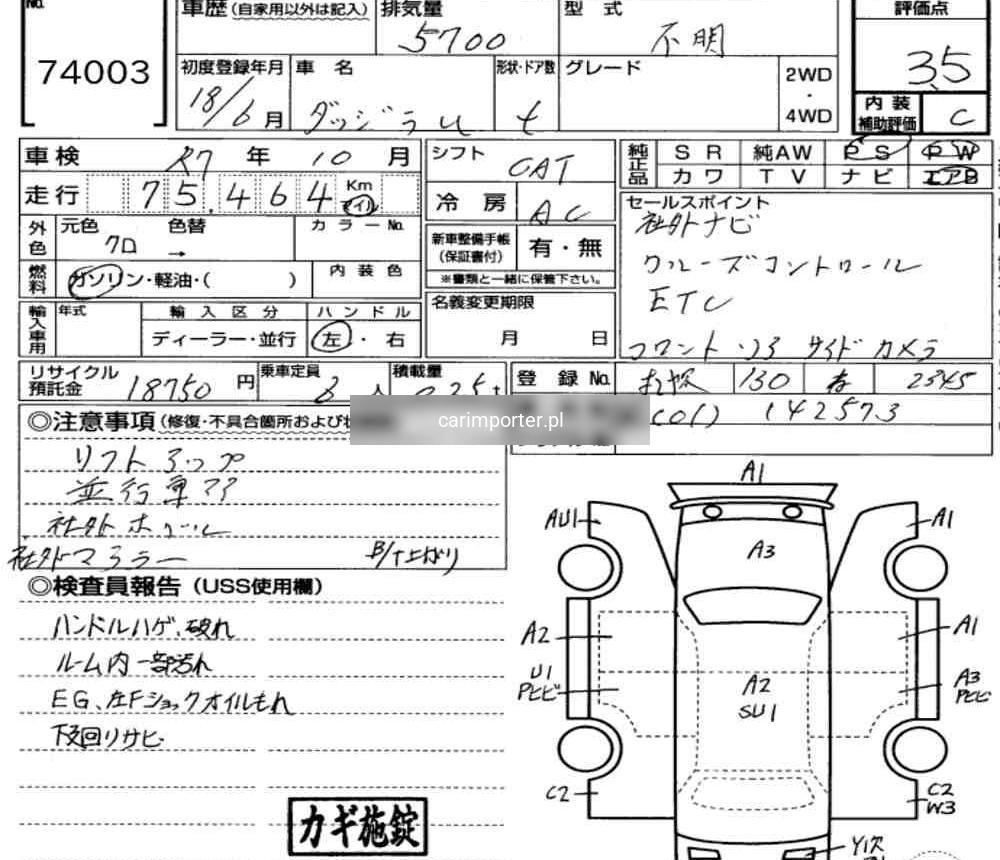 No.
74003
車歴(自家用以外は記入)
排気量
5700
型式
不明
評価点
3.5
初度登録年月
18/6月
車名
ダッジラム
形状・ドア数
t
グレード
2WD
・
4WD
内装
補助評価
C
車検
R7年10月
走行
75,464
Km
マイル
シフト
CAT
冷房
AC
純正品
SR
純AW
PS
PW
カワ
TV
ナビ
エアB
外色
元色
クロ
色替
→
カラーNo.
燃料
ガソリン・軽油・( )
内装色
新車整備手帳
(保証書付)
有・無
※書類と一緒に保管下さい。
セールスポイント
社外ナビ
クルーズコントロール
ETC
フロント・サイドカメラ
輸入車用
年式
輸入区分
ディーラー・並行
ハンドル
左・右
名義変更期限
月 日
リサイクル
預託金
18750円
乗車定員
3人
積載量
0.25t
登録No.
130
2345
(01) 142573
carimporter.pl
◎注意事項(修復・不具合箇所および
リフトアップ
並行車
社外ホイール
社外マフラー
B/T上がり
◎検査員報告(USS使用欄)
ハンドルハゲ、破れ
ルーム内一部汚れ
EG、左Fショックオイルもれ
下回りサビ
カギ施錠
A1
AU1
A1
A3
A2
A1
U1
Pヒビ
A2
SU1
A3
Pヒビ
C2
C2
W3
Y1欠